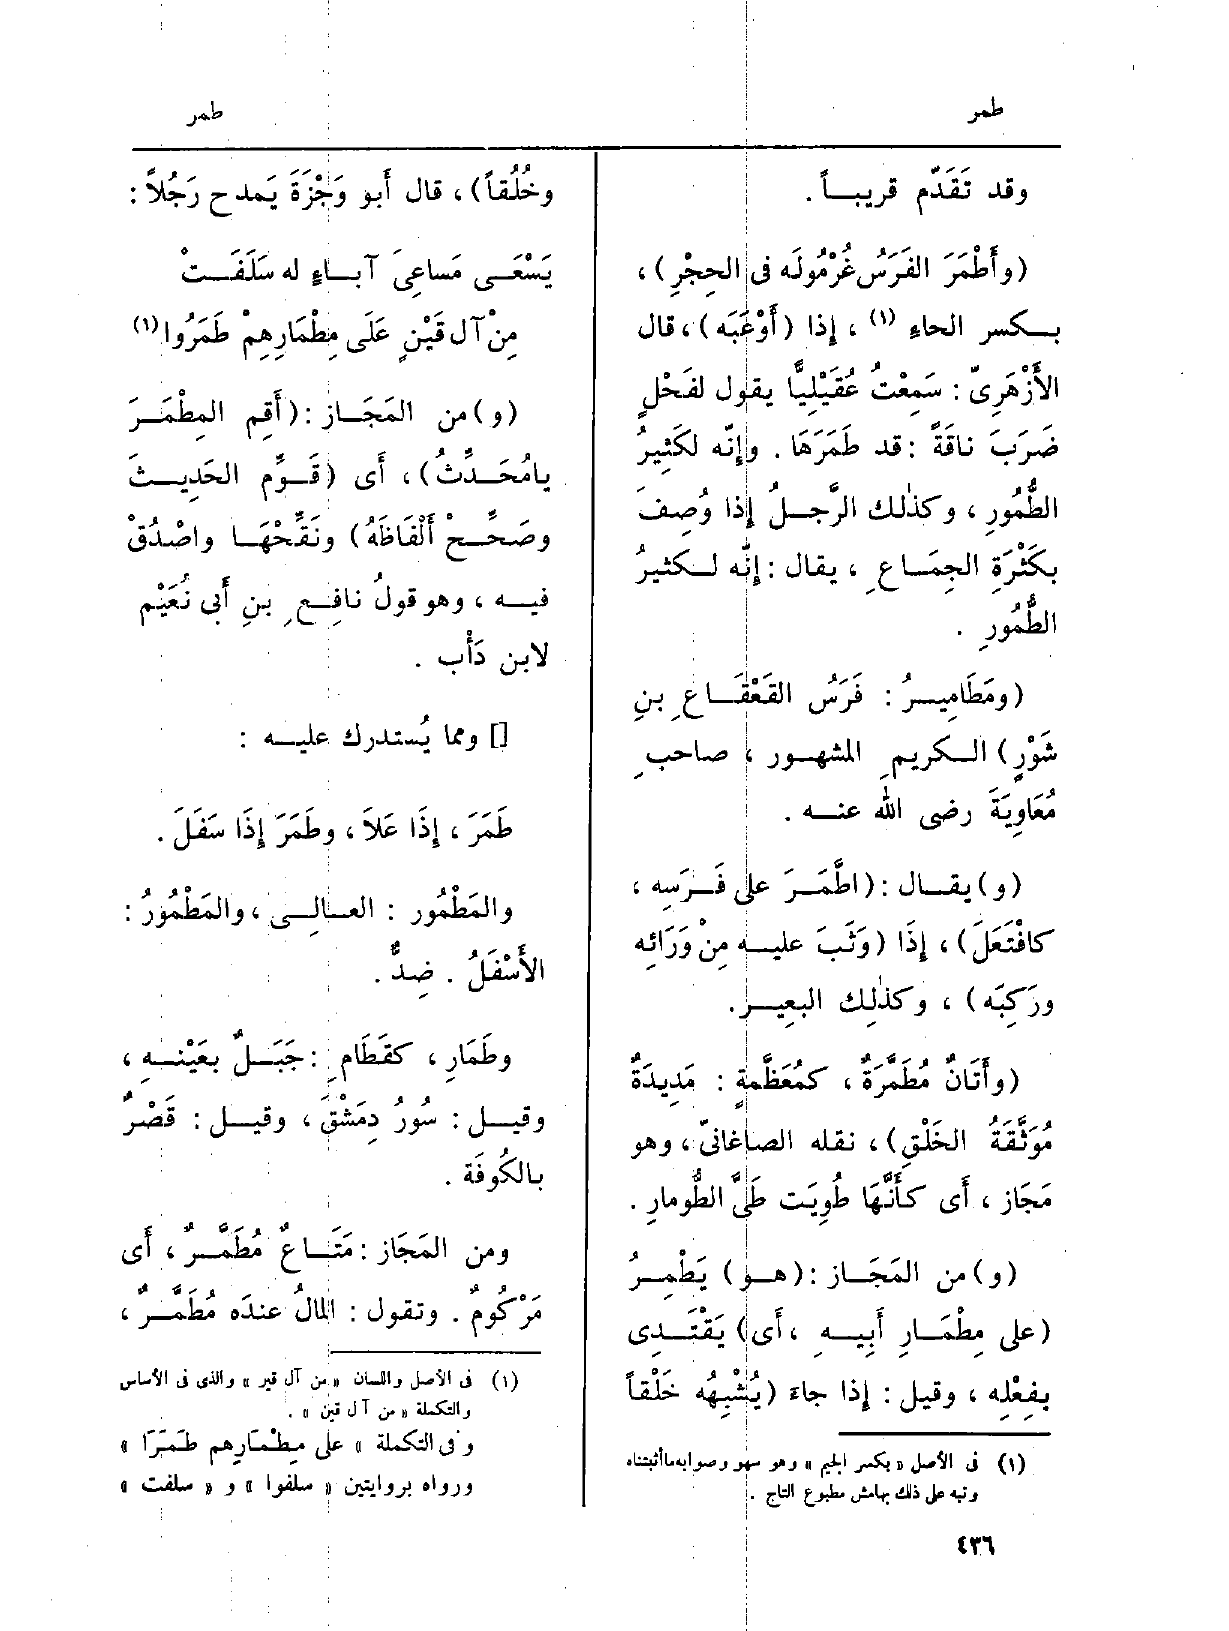 طمر
طمر
وقد تَقَدّم قريبــاً .
(وأَطْمَرَ الفَرَسُ غُرْمُولَه فى الحِجْرِ) ،
بـكسر الحاءِ (١) ، إذا (أَوْعَبَه) ، قال
الأَزْهَرِىّ : سَمِعْتُ عُقَيْلِيًّا يقول لفَحْلٍ
ضَرَبَ ناقَةً : قد طَمَرَهَا . وإِنّه لكَثِيرُ
الطُّمُورِ ، وكذٰلك الرَّجلُ إذا وُصِفَ
بكَثْرَةِ الجِمَـاعِ ، يقال : إِنَّه لـكثيرُ
الطُّمُورِ .
(ومَطَامِيـرُ : فَرَسُ القَعْقَـاعِ بنِ
شَوْرٍ) الـكريمِ المشهـور ، صاحبِ
مُعَاوِيَةَ رضى الله عنـه .
(و) يقـال : (اطَّمَرَ على فَـرَسِه ،
كافْتَعَلَ) ، إِذَا (وَثَبَ عليـه مِنْ وَرَائه
ورَكِبَه) ، وكذٰلِك البعِيـر .
(وأَتَانٌ مُطَمَّرَةٌ ، كمُعَظَّمةٍ : مَدِيدَةٌ
مُوَثَّقَةُ الخَلْقِ) ، نقله الصاغانىّ ، وهو
مَجَاز ، أَى كأَنَّهَا طُوِيَت طَىَّ الطُّومارِ .
(و) من المَجَـاز : (هـو) يَطْمِـرُ
(على مِطْمَـارِ أَبيـهِ ، أَى) يَقْتَـدِى
بفِعْلِه ، وقيل : إذا جاءَ (يُشْبِهُه خَلْقاً
(١) فى الأصل « بكسر الجيم » وهو سهو وصوابه ما أثبتناه
ونبه على ذلك بهامش مطبوع التاج .
وخُلُقاً) ، قال أَبو وَجْزَةَ يَمدح رَجُلاً :
يَسْعَـى مَساعِىَ آبـاءٍ له سَلَفَـتْ
مِنْ آل قَيْنٍ عَلَى مِطْمَارِهِمْ طَمَرُوا (١)
(و) من المَجَـاز : (أَقِم المِطْمَـرَ
يامُحَـدِّثُ) ، أَى (قَـوِّم الحَدِيـثَ
وصَحِّـحْ أَلْفَاظَهُ) ونَقِّحْهَـا واصْدُقْ
فيـه ، وهو قولُ نافِـعِ بنِ أَبى نُعَيْم
لابن دَأْب .
[] ومما يُستدرك عليـه :
طَمَرَ ، إِذَا عَلاَ ، وطَمَرَ إِذَا سَفَلَ .
والمَطْمُور : العـالِـى ، والمَطْمُورُ :
الأَسْفَلُ . ضِدٌّ .
وطَمَارِ ، كقَطَامِ : جَبَـلٌ بعَيْنـهِ ،
وقيـل : سُورُ دِمَشْقَ ، وقيـل : قَصْرٌ
بالكُوفَة .
ومن المَجَاز : مَتَـاعٌ مُطَمَّـرٌ ، أَى
مَرْكُومٌ . وتقول : المَالُ عندَه مُطَمَّـرٌ ،
(١) فى الأصل واللسان « من آل قير » والذى فى الأساس
والتكملة « من آل قين » .
وفى التكملة « على مِطْمَارِهم طَمَرَا »
ورواه بروايتين « سلفوا » و « سلفت »
٤٣٦